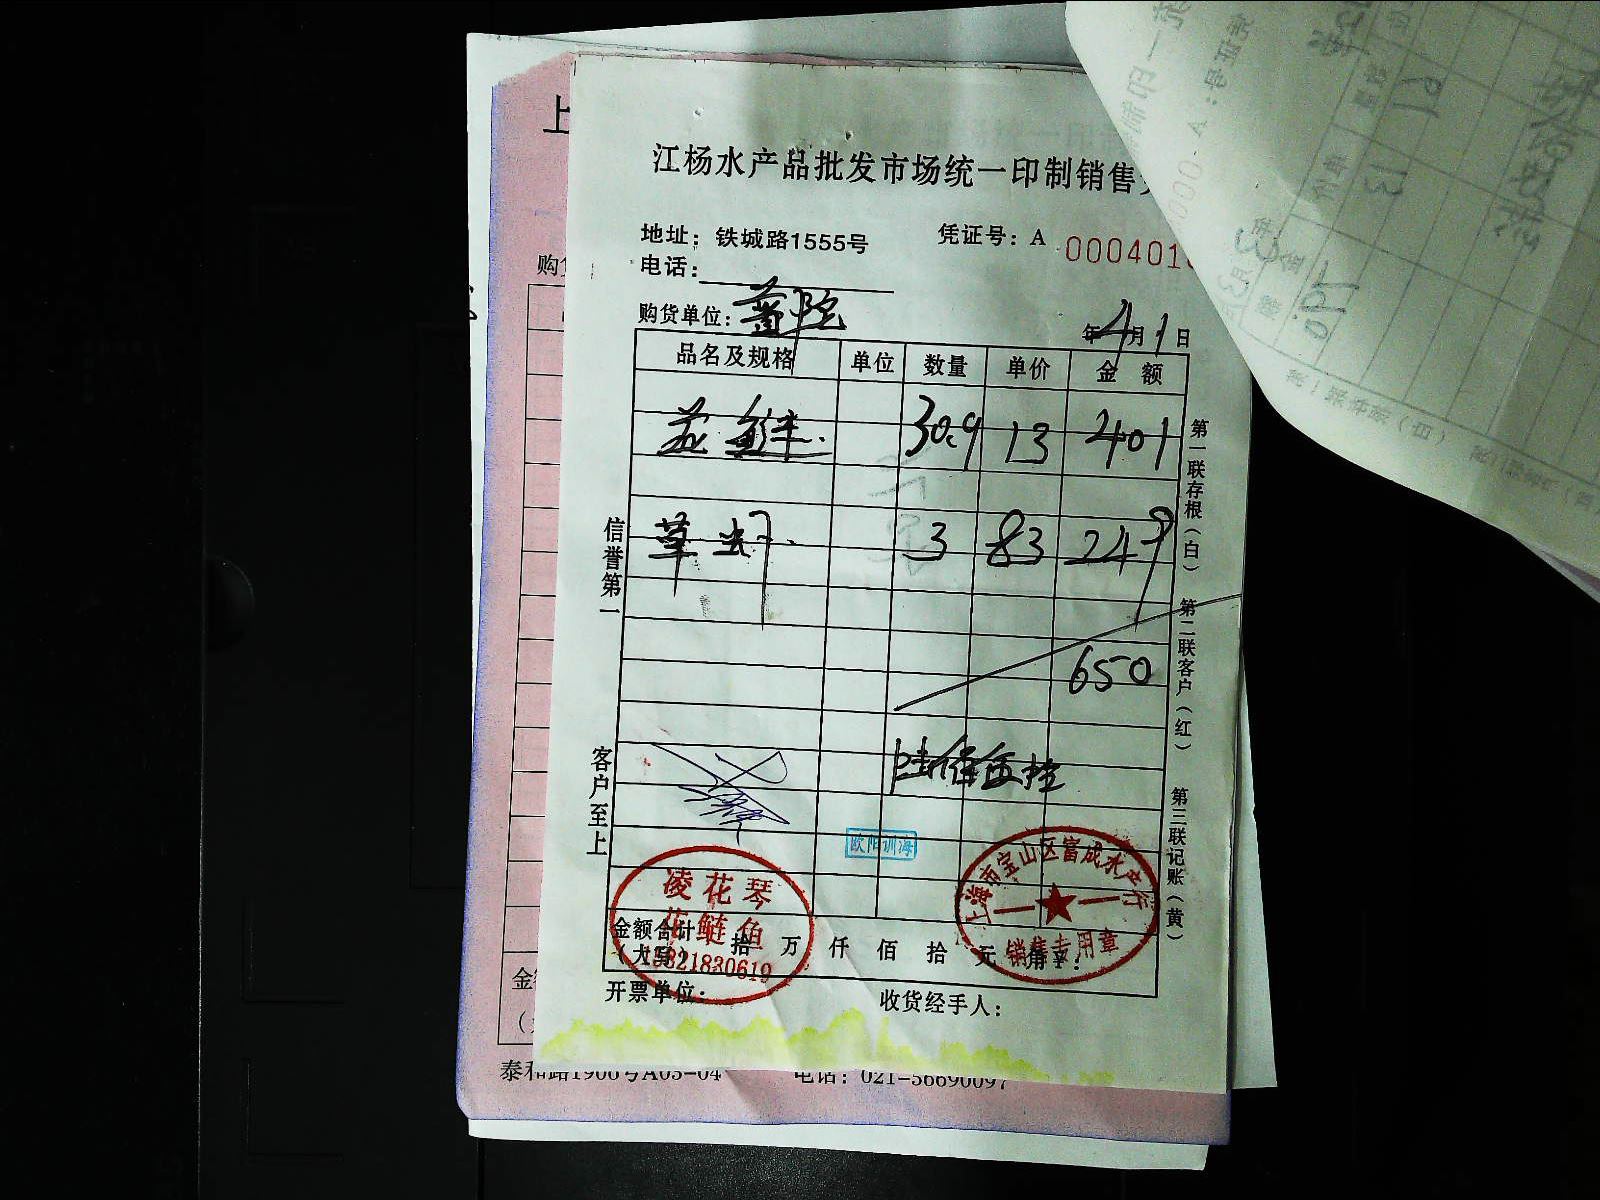 江杨水产品批发市场统一印制销售
地址：铁城路1555号
凭证号：A 000401
电话：
购货单位：
年4月1日
品名及规格 单位 数量 单价 金额
花鲢 30.9 13 401
草虾 3 83 249
650
陆佰伍拾
欧阳训海
凌花琴
花鲢鱼
13321830619
上海市宝山区富成水产行
销售专用章
金额合计
（大写） 拾 万 仟 佰 拾 元 角 ¥：
开票单位：
收货经手人：
信誉第一
客户至上
第一联存根（白）
第二联客户（红）
第三联记账（黄）
上
购
金
泰和路1908号A03-04 电话：021-56690097